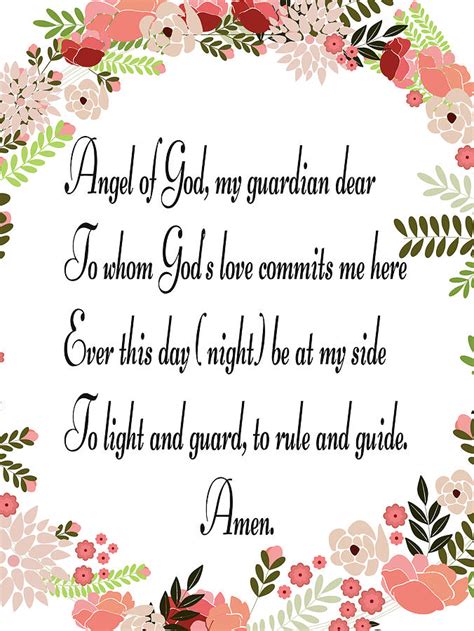 Angel of God, my guardian dear
To whom God's love commits me here
Ever this day (night) be at my side
To light and guard, to rule and guide.
Amen.